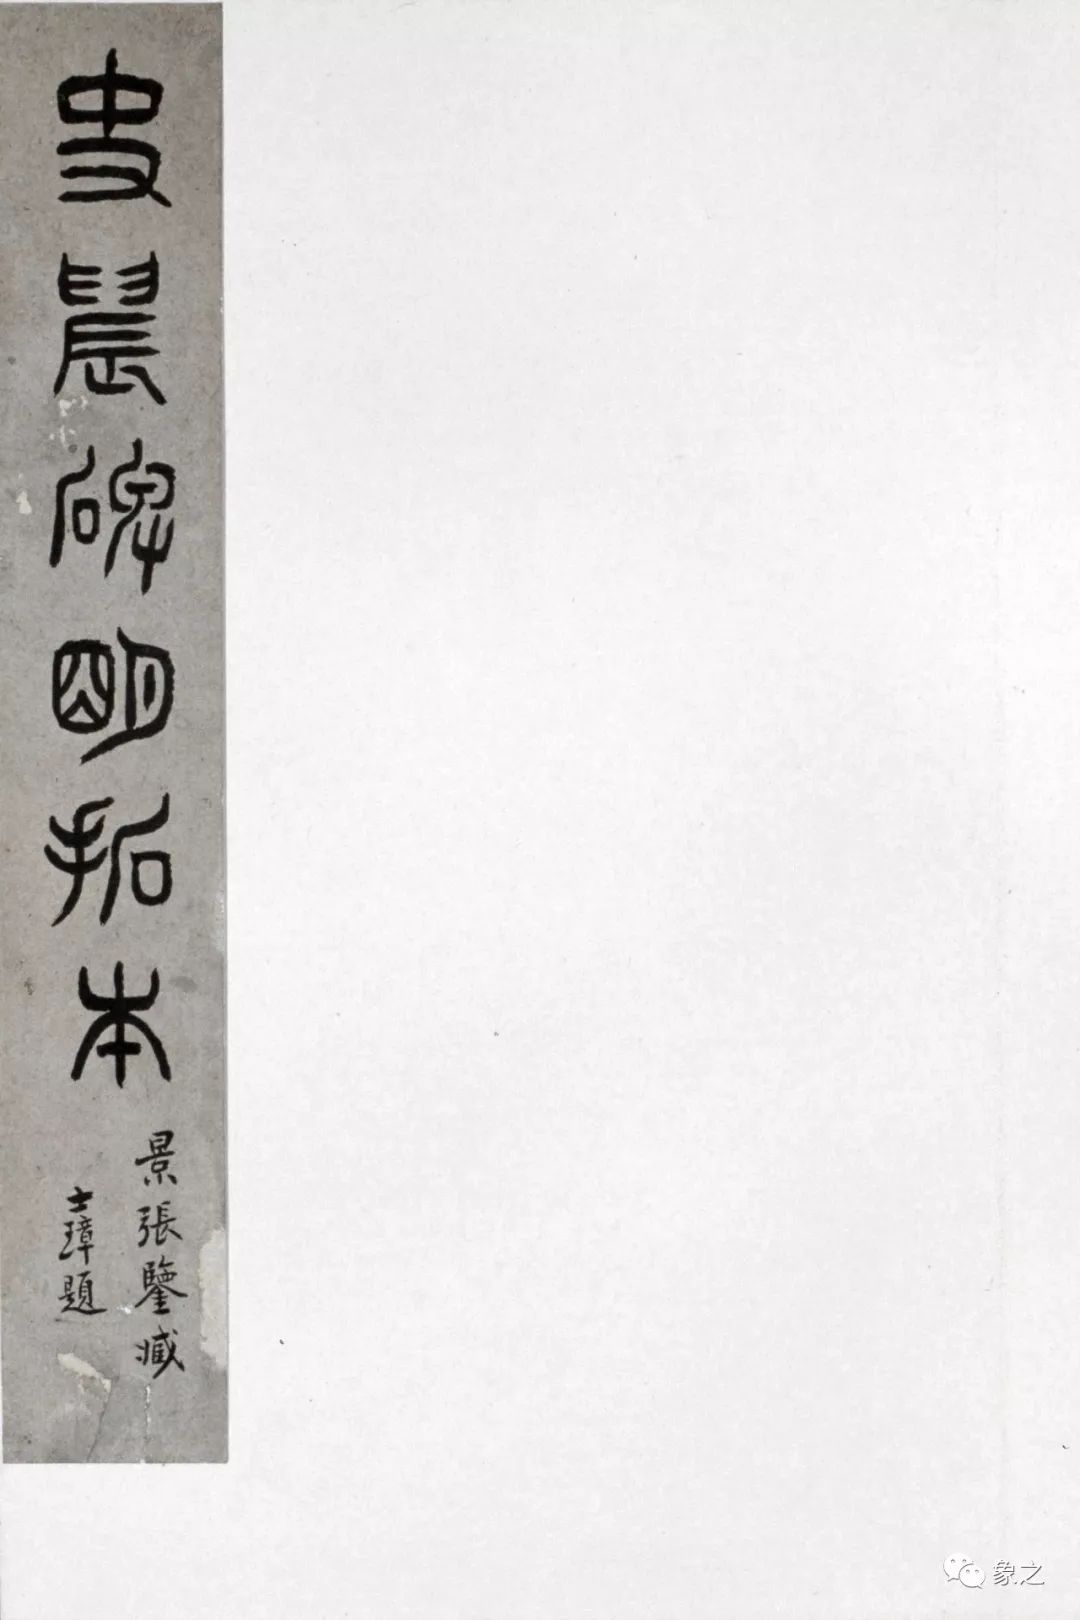 史晨碑明拓本
景張鑒臧
士璋題
象之